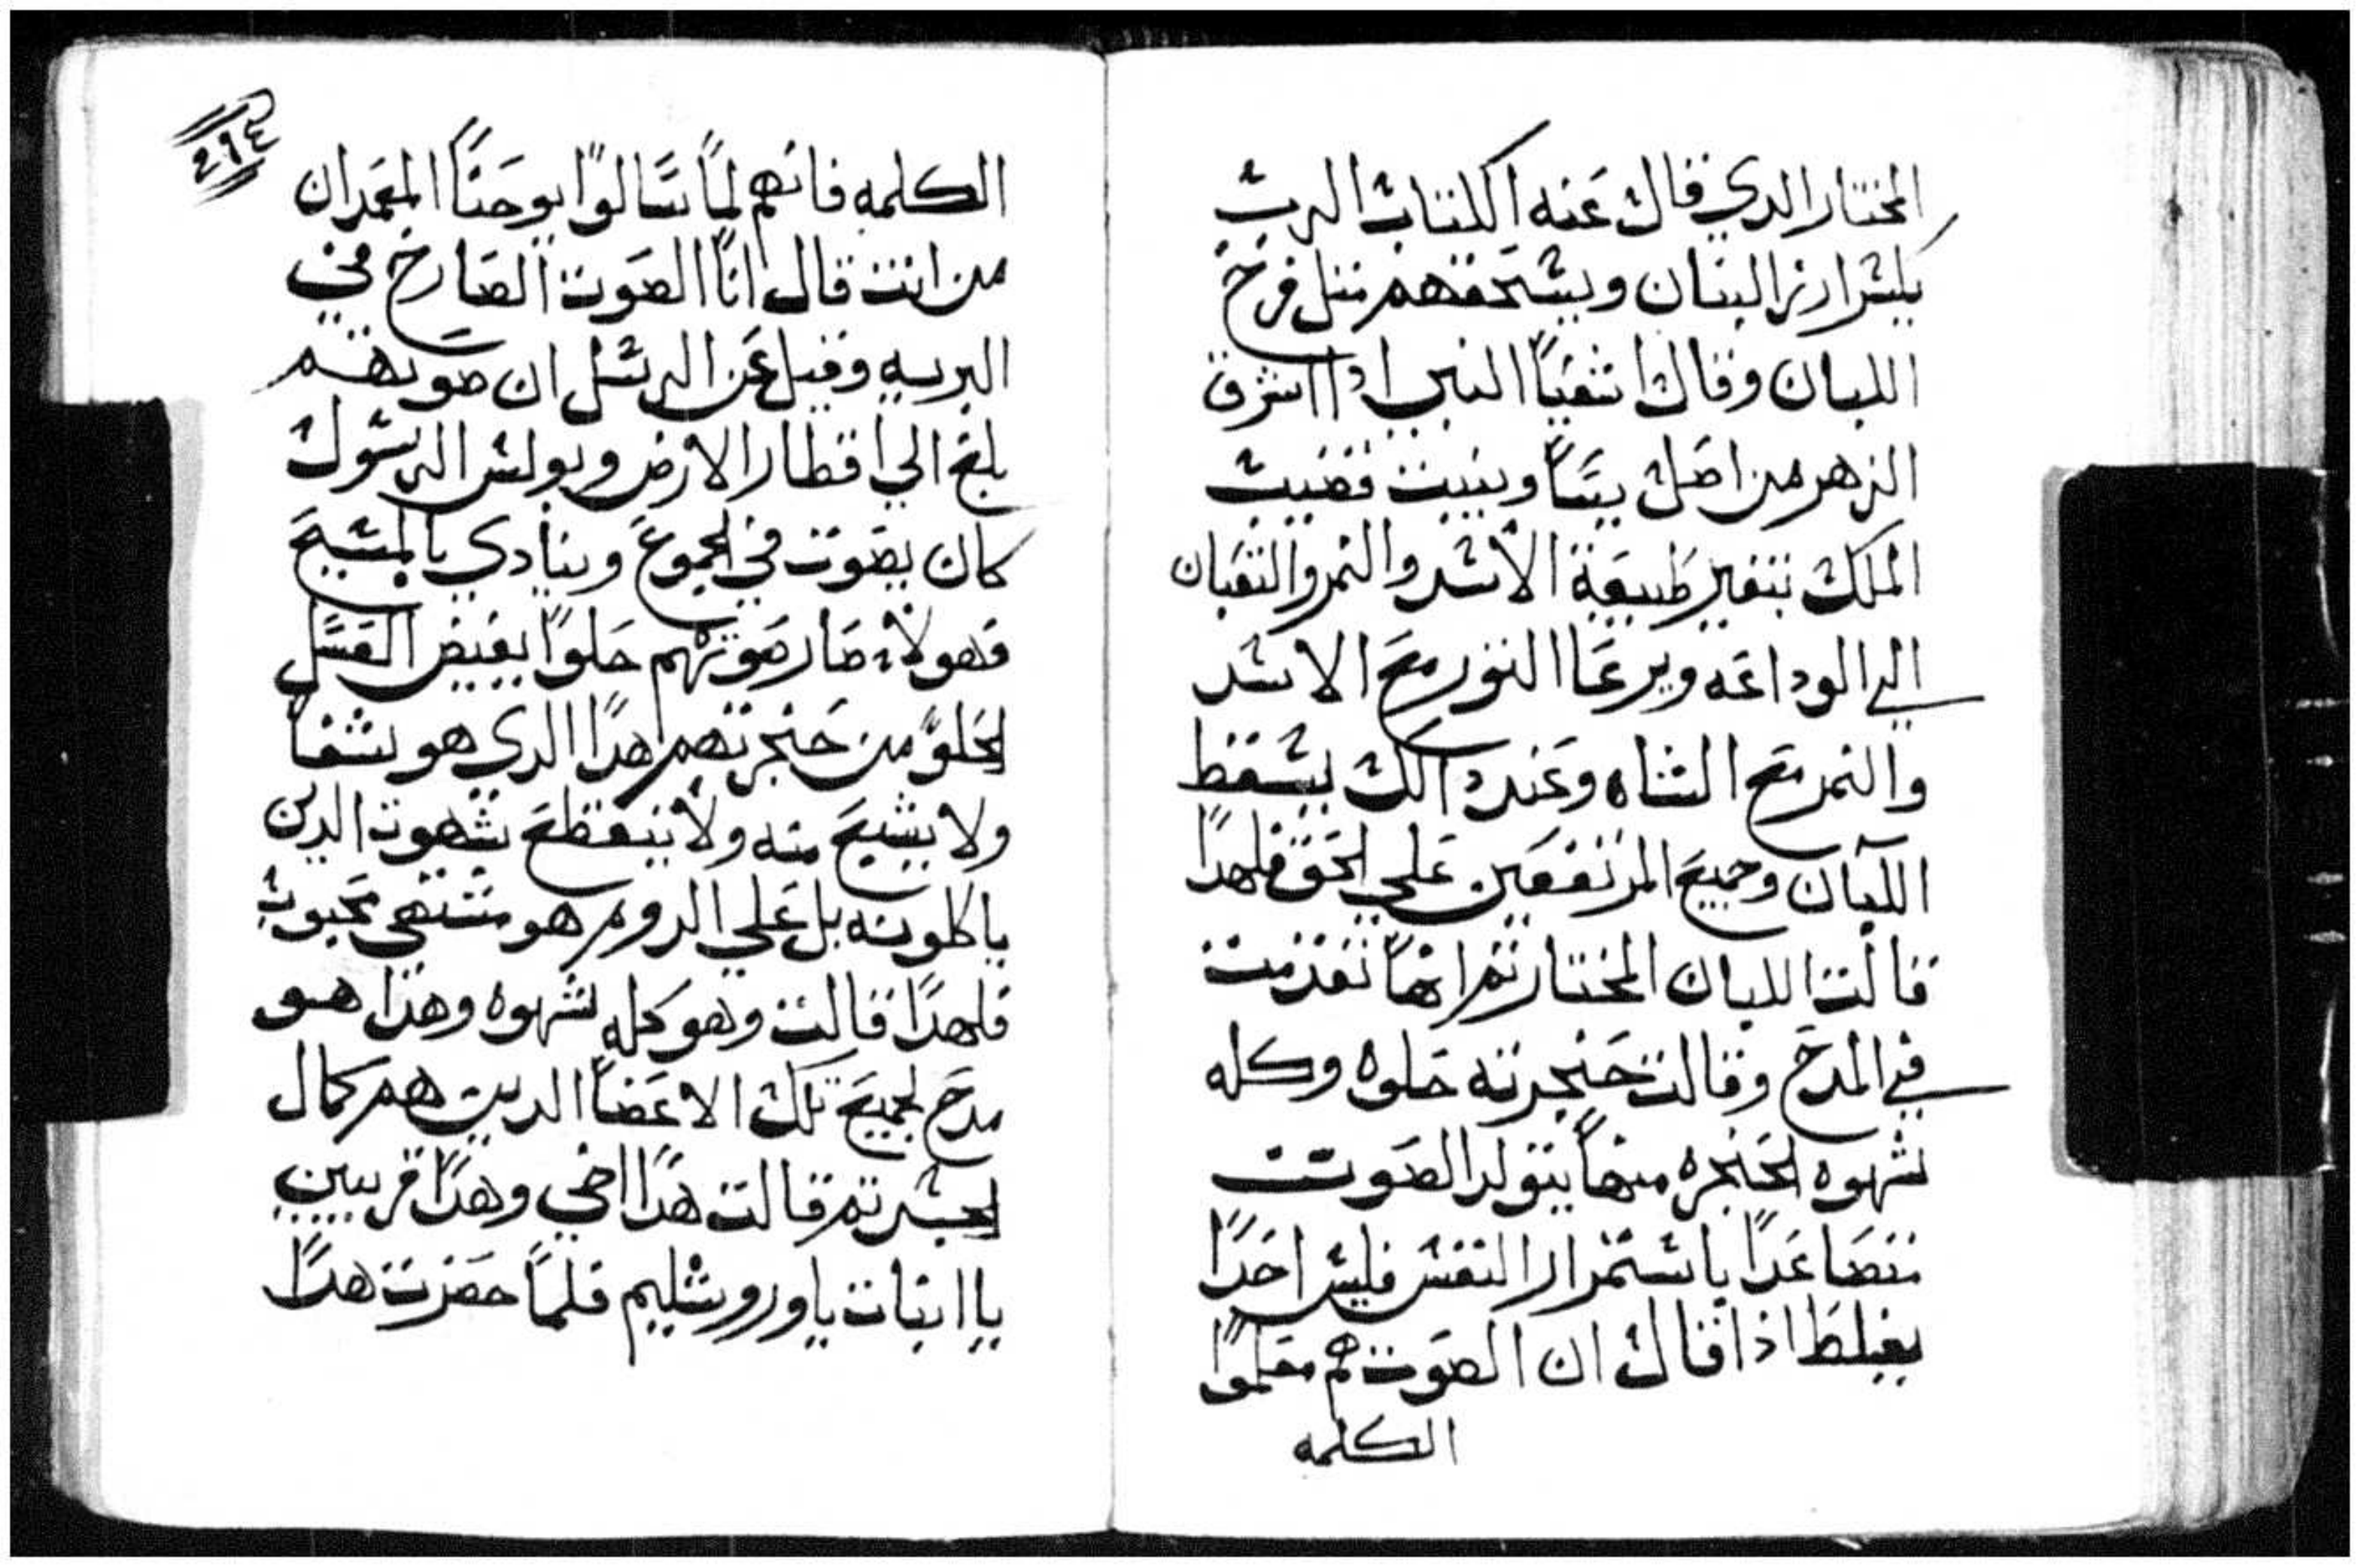 المختار الدي قال عنه الكتاب الرب
يكسر ارز البنان ويسحقهم متل فرخ
اللبان وقال اشعيا النبي ادا اشرق
الزهر من اصل يسا وينبت قضيب
الملك تتغير طبيعة الاسد والنمر والتعبان
الي الوداعه ويرعا التور مع الاسد
والنمر مع الشاه وعند دالك يسقط
اللبان وجميع المرتفعين علي الحق فلهدا
قالت اللبان المختار تم انها تقدمت
في المدح وقالت حنجرته حلوه وكله
شهوه الحنجره منها يتولد الصوت
متصاعدا باستمرار النفس فليس احدا
يغلط اذا قال ان الصوت هم معلموا
الكلمه
٢٩٤
الكلمه فانهم لما سالوا يوحنا المعمدان
من انت قال انا الصوت الصارخ في
البريه وقيل عن الرسل ان صوتهم
بلغ الي اقطار الارض وبولس الرسول
كان يصوت في الجموع وينادي بالمسيح
فهولاء صار صوتهم حلوا يفيض العسل
الحلو من حنجرتهم هدا الدي هو شفا
ولا يشبع منه ولا تنقطع شهوت الدين
ياكلونه بل علي الدوم هو مشتهي محبوب
فلهدا قالت وهو كله شهوه وهدا هو
مدح لجميع تلك الاعضا الدين هم كمال
الجسد تم قالت هدا اخي وهدا قريبي
يا ابنات ياوروشليم فلما حضرت هدا